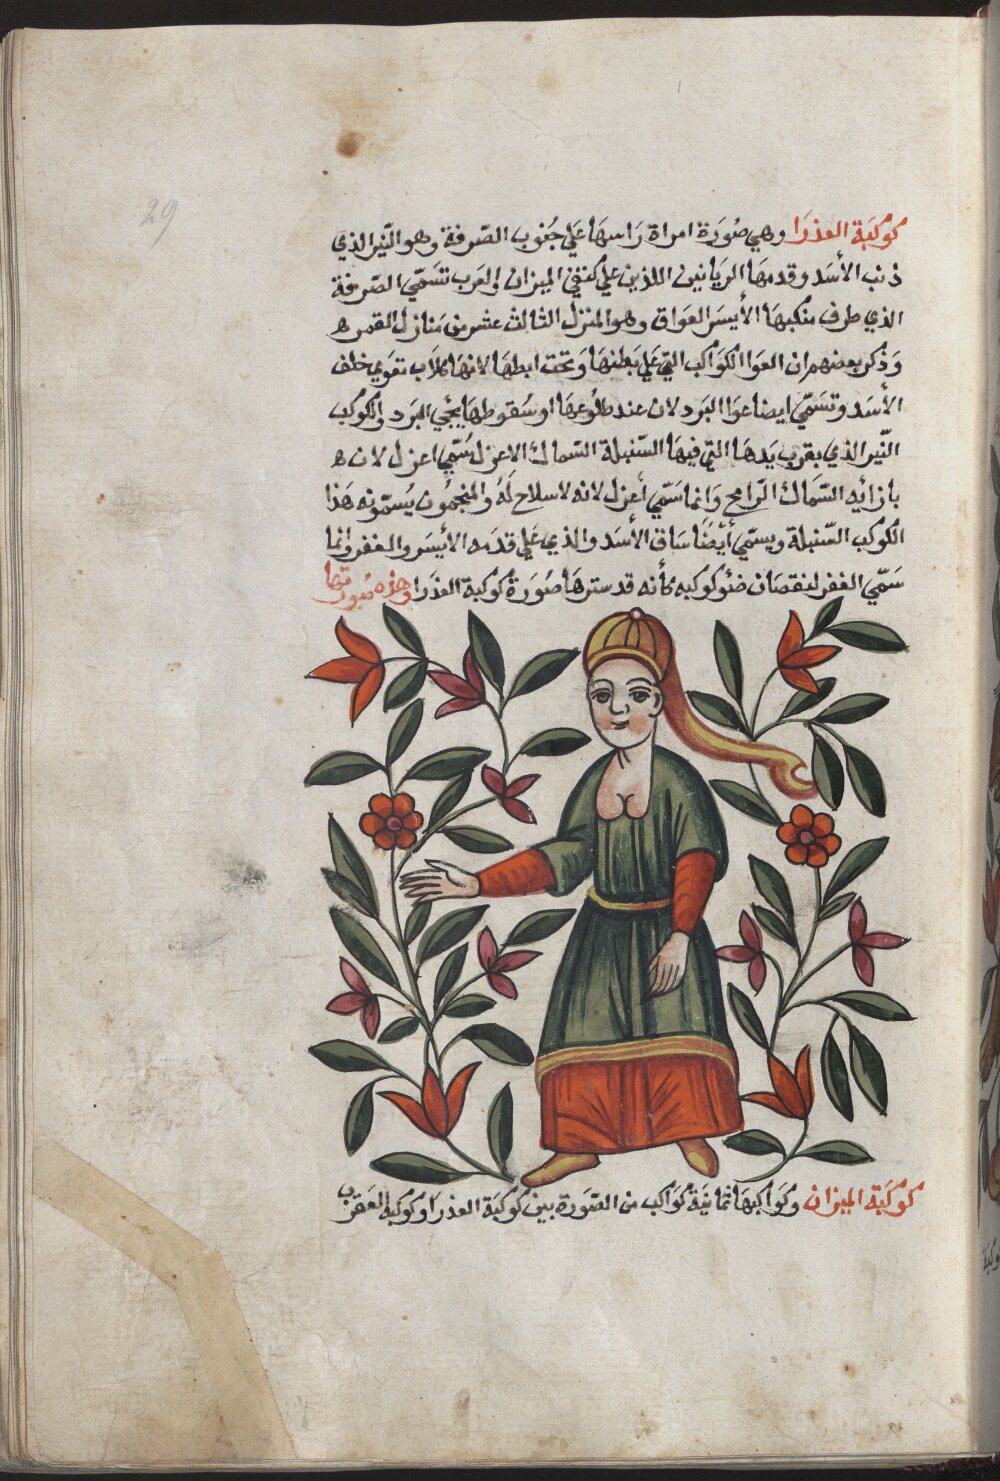 29
كوكبَة العذرَا وهي صُورَة امراة رَاسهَا عَلي جَنوب الصّرفة وهو النّير الذي
ذنب الأسَد وقدمهَا الزبَانين اللذين علي كفتي الميزان والعَرب تسَمّي الصّرفة
الذي طرف منكبهَا الأيسَر العوَا وهو المنزل الثالث عشر من مَنازل القمر ه
وَذكر بعضهم ان العوا الكوَاكب التي علي بَطنهَا وَتحت ابطهَا لانهَا كلاَب تعوَي خلف
الأسَد وتسَمّي ايضا عوا البَرد لان عند طلُوعهَا او سُقوطهَا يجي البَرد والكوكب
النّير الذي بقرب يَدهَا التي فيهَا السّنبلة السّماك الاعزل سُمّي اعزل لان ه
بازائه السّمَاك الرّامح وَانما سَمّي أعزل لانه لا سلاح لهُ والمنجمُون يُسمّونه هَذا
الكوكب السّنبلة ويسمّي أيْضًا سَاق الأسَد والذي علي قدمه الأيسَر والغفر وانما
سَمّي الغفر لنقصَان ضئو كوكبه كأنه قد سترهَا صُورَة كوكبة العذَرا وهذه صُورتها
كوكبَة الميزان وَكوَاكبهَا ثمانيَة كوَاكب من الصّورَة بين كوكبَة العذرا وكوكبَة العَقرَب
وكبَة